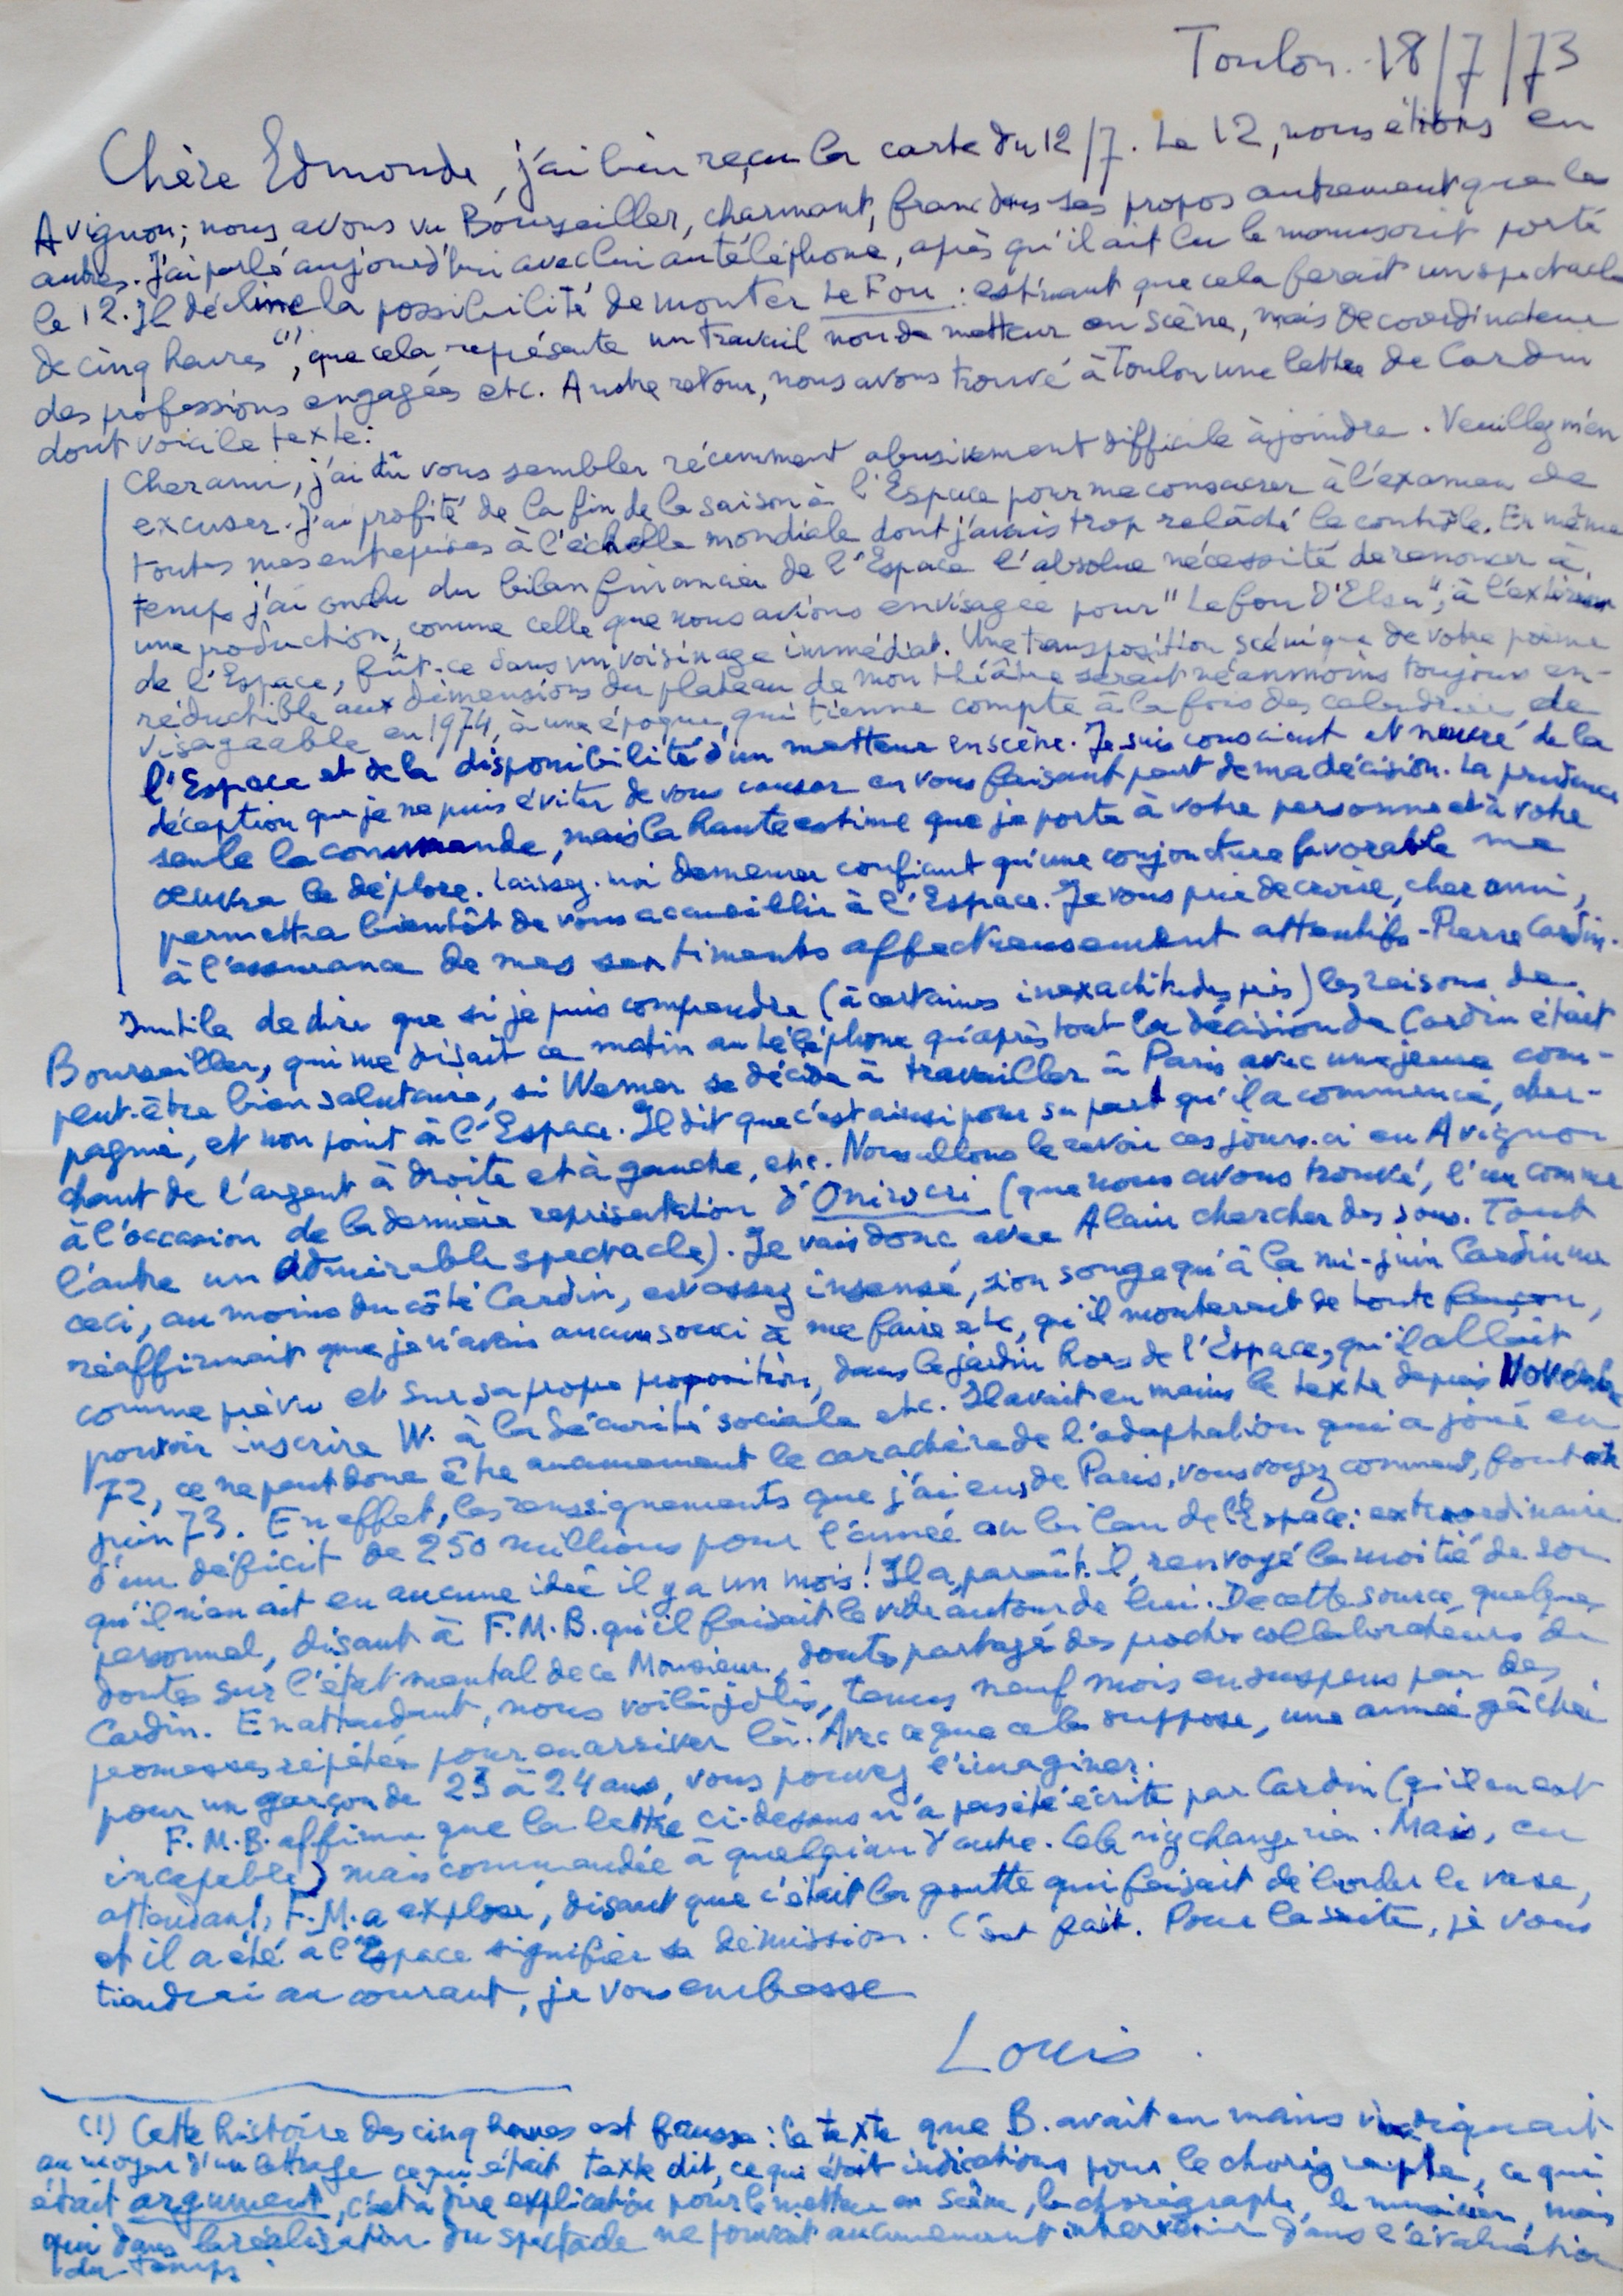 Toulon. 18/7/73
Chère Edmonde, j'ai bien reçu la carte du 12/7. Le 12, nous étions en
Avignon; nous avons vu Bourseiller, charmant, franc dans ses propos autrement que les
autres. J'ai parlé aujourd'hui avec lui au téléphone, après qu'il ait lu le manuscrit porté
le 12. Il décline la possibilité de monter Le Fou : estimant que cela ferait un spectacle
de cinq heures (1), que cela représente un travail non de metteur en scène, mais de coordinateur
des professions engagées etc. A notre retour, nous avons trouvé à Toulon une lettre de Cardin
dont voici le texte:
Cher ami, j'ai dû vous sembler récemment abusivement difficile à joindre. Veuillez m'en
excuser. J'ai profité de la fin de la saison à l'Espace pour me consacrer à l'examen de
toutes mes entreprises à l'échelle mondiale dont j'avais trop relâché le contrôle. En même
temps j'ai conclu du bilan financier de l'Espace l'absolue nécessité de renoncer à
une production, comme celle que nous avions envisagée pour "Le fou d'Elsa", à l'extérieur
de l'Espace, fût-ce dans un voisinage immédiat. Une transposition scénique de votre poème
réductible aux dimensions du plateau de mon théâtre serait néanmoins toujours en-
visageable en 1974, à une époque qui tienne compte à la fois des calendriers de
l'Espace et de la disponibilité d'un metteur en scène. Je suis conscient et navré de la
déception que je ne puis éviter de vous causer en vous faisant part de ma décision. La prudence
seule la commande, mais la haute estime que je porte à votre personne et à votre
œuvre la déplore. Laissez-moi demeurer confiant qu'une conjoncture favorable me
permettra bientôt de vous accueillir à l'Espace. Je vous prie de croire, cher ami,
à l'assurance de mes sentiments affectueusement attentifs - Pierre Cardin.
Inutile de dire que si je puis comprendre (à certaines inexactitudes près) les raisons de
Bourseiller, qui me disait ce matin au téléphone qu'après tout la décision de Cardin était
peut-être bien salutaire, si Werner se décide à travailler à Paris avec une jeune com-
pagnie, et non point à l'Espace. Il dit que c'est ainsi pour sa part qu'il a commencé, cher-
chant de l'argent à droite et à gauche, etc. Nous allons le revoir ces jours-ci en Avignon
à l'occasion de la dernière représentation d'Onirocri (que nous avons trouvé, l'un comme
l'autre un admirable spectacle). Je vais donc avec Alain chercher des sous. Tout
ceci, au moins du côté Cardin, est assez insensé, si on songe qu'à la mi-juin Cardin me
réaffirmait que je n'avais aucun souci à me faire etc, qu'il monterait de toute façon,
comme prévu et sur sa propre proposition, dans le jardin hors de l'Espace, qu'il allait
pouvoir inscrire W. à la Sécurité sociale etc. Il avait en mains le texte depuis Novembre
72, ce ne peut donc être aucunement le caractère de l'adaptation qui a joué en
juin 73. En effet, les renseignements que j'ai eus de Paris, vous voyez comment, font état
d'un déficit de 250 millions pour l'année au bilan de l'Espace: extraordinaire
qu'il n'en ait eu aucune idée il y a un mois! Il a, paraît-il, renvoyé la moitié de son
personnel, disant à F.M.B. qu'il faisait le vide autour de lui. De cette source, quelques
doutes sur l'état mental de ce Monsieur, doutes partagés des proches collaborateurs de
Cardin. En attendant, nous voilà jolis, tenus neuf mois en suspens par des
promesses répétées pour en arriver là. Avec ce que cela suppose, une année gâchée
pour un garçon de 23 à 24 ans, vous pouvez l'imaginer.
F.M.B. affirme que la lettre ci-dessus n'a pas été écrite par Cardin (qu'il en est
incapable) mais commandée à quelqu'un d'autre. Cela n'y change rien. Mais, en
attendant, F.M. a explosé, disant que c'était la goutte qui faisait déborder le vase,
et il a été à l'Espace signifier sa démission. C'est fait. Pour la suite, je vous
tiendrai au courant, je vous embrasse
Louis.
(1) Cette histoire des cinq heures est fausse: le texte que B. avait en mains indiquait
au moyen d'un lettrage ce qui était texte dit, ce qui était indications pour le chorégraphe, ce qui
était argument, c'est à dire explication pour le metteur en scène, le chorégraphe, le musicien, mais
qui dans la réalisation du spectacle ne pouvait aucunement intervenir dans l'évaluation
du temps.